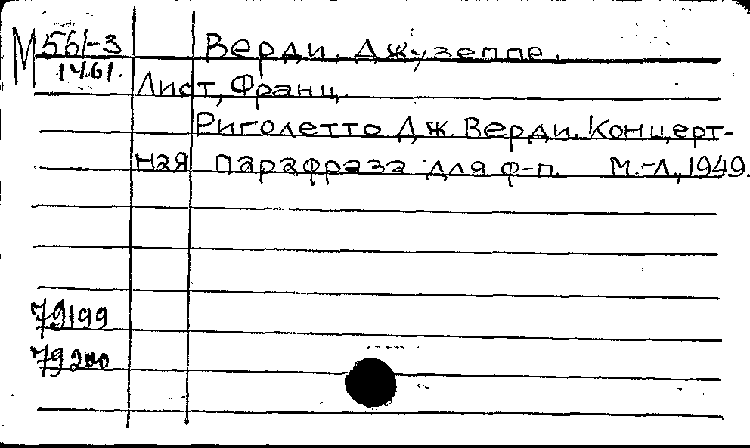 М 561-3 Верди. Джузеппе.
1461.
Лист, Франц.
Риголетто Дж. Верди. Концерт-
ная парафраза для ф-п. М.-Л., 1949.
79199
79200